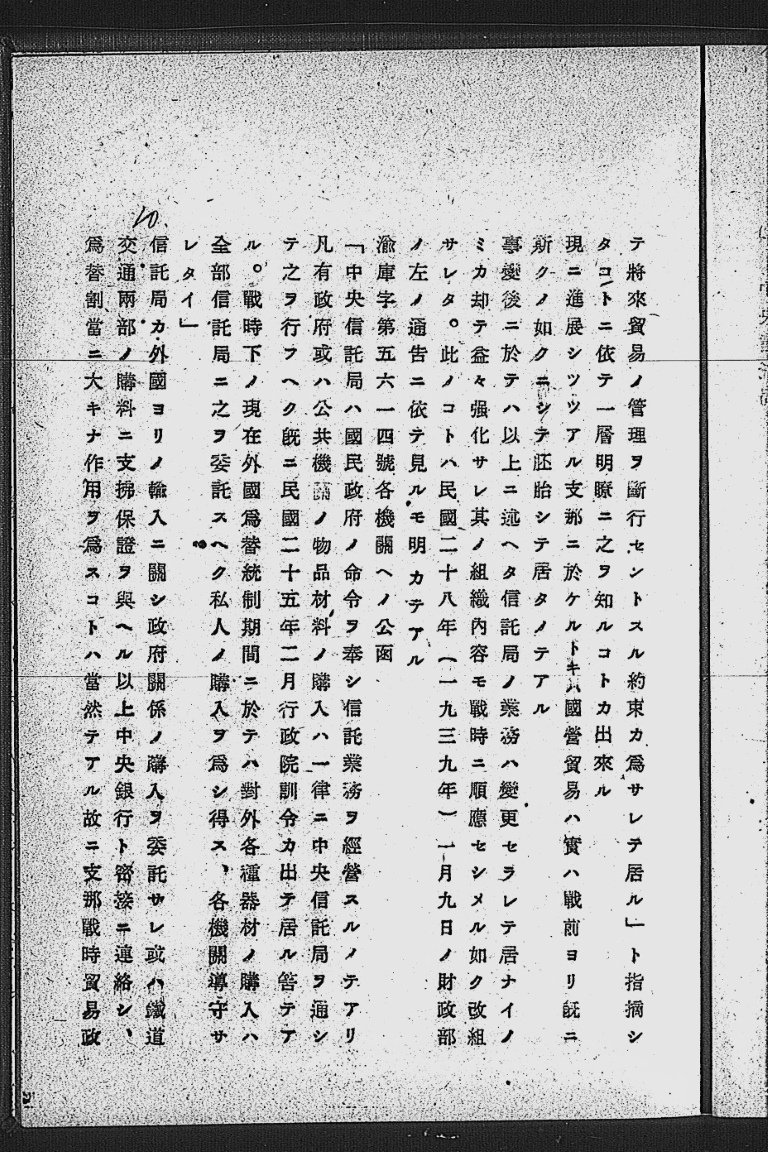 テ將來貿易ノ管理ヲ斷行セントスル約束カ爲サレテ居ル」ト指摘シ
タコトニ依テ一層明瞭ニ之ヲ知ルコトカ出來ル
現ニ進展シツツアル支那ニ於ケルトキハ國營貿易ハ實ハ戰前ヨリ既ニ
斯クノ如クニシテ胚胎シテ居タノテアル
事變後ニ於テハ以上ニ述ヘタ信託局ノ業務ハ變更セラレテ居ナイノ
ミカ却テ益々强化サレ其ノ組織內容モ戰時ニ順應セシメル如ク改組
サレタ。此ノコトハ民國二十八年(一九三九年)一月九日ノ財政部
ノ左ノ通告ニ依テ見ルモ明カテアル
渝庫字第五六一四號各機關ヘノ公函
「中央信託局ハ國民政府ノ命令ヲ奉シ信託業務ヲ經營スルノテアリ
凡有政府或ハ公共機關ノ物品材料ノ購入ハ一律ニ中央信託局ヲ通シ
テ之ヲ行フヘク既ニ民國二十五年二月行政院訓令カ出テ居ル筈テア
ル。戰時下ノ現在外國爲替統制期間ニ於テハ對外各種器材ノ購入ハ
全部信託局ニ之ヲ委託スヘク私人ノ購入ヲ爲シ得ス、各機關導守サ
レタイ」
信託局カ外國ヨリノ輸入ニ關シ政府關係ノ購入ヲ委託サレ或ハ鐵道
交通兩部ノ購料ニ支拂保證ヲ與ヘル以上中央銀行ト密接ニ連絡シ、
爲替割當ニ大キナ作用ヲ爲スコトハ當然テアル故ニ支那戰時貿易政
10